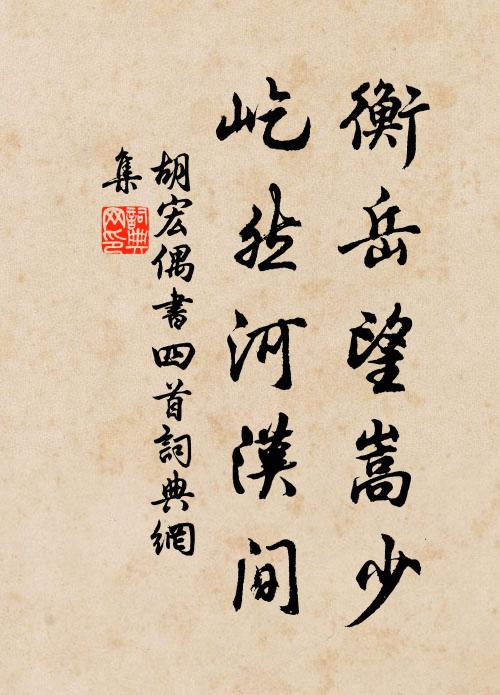 衡岳望嵩少
屹然河漢間
胡宏偶書四首詞典網
集
詞典網印